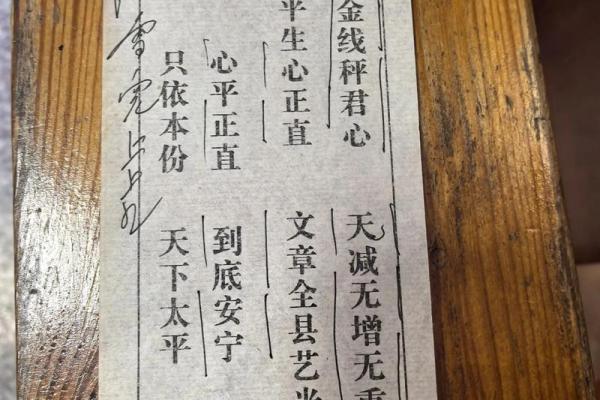 金线秤君心
天减无增无
平生心正直
文章全县艺
心平正直
到底安宁
只依本份
天下太平